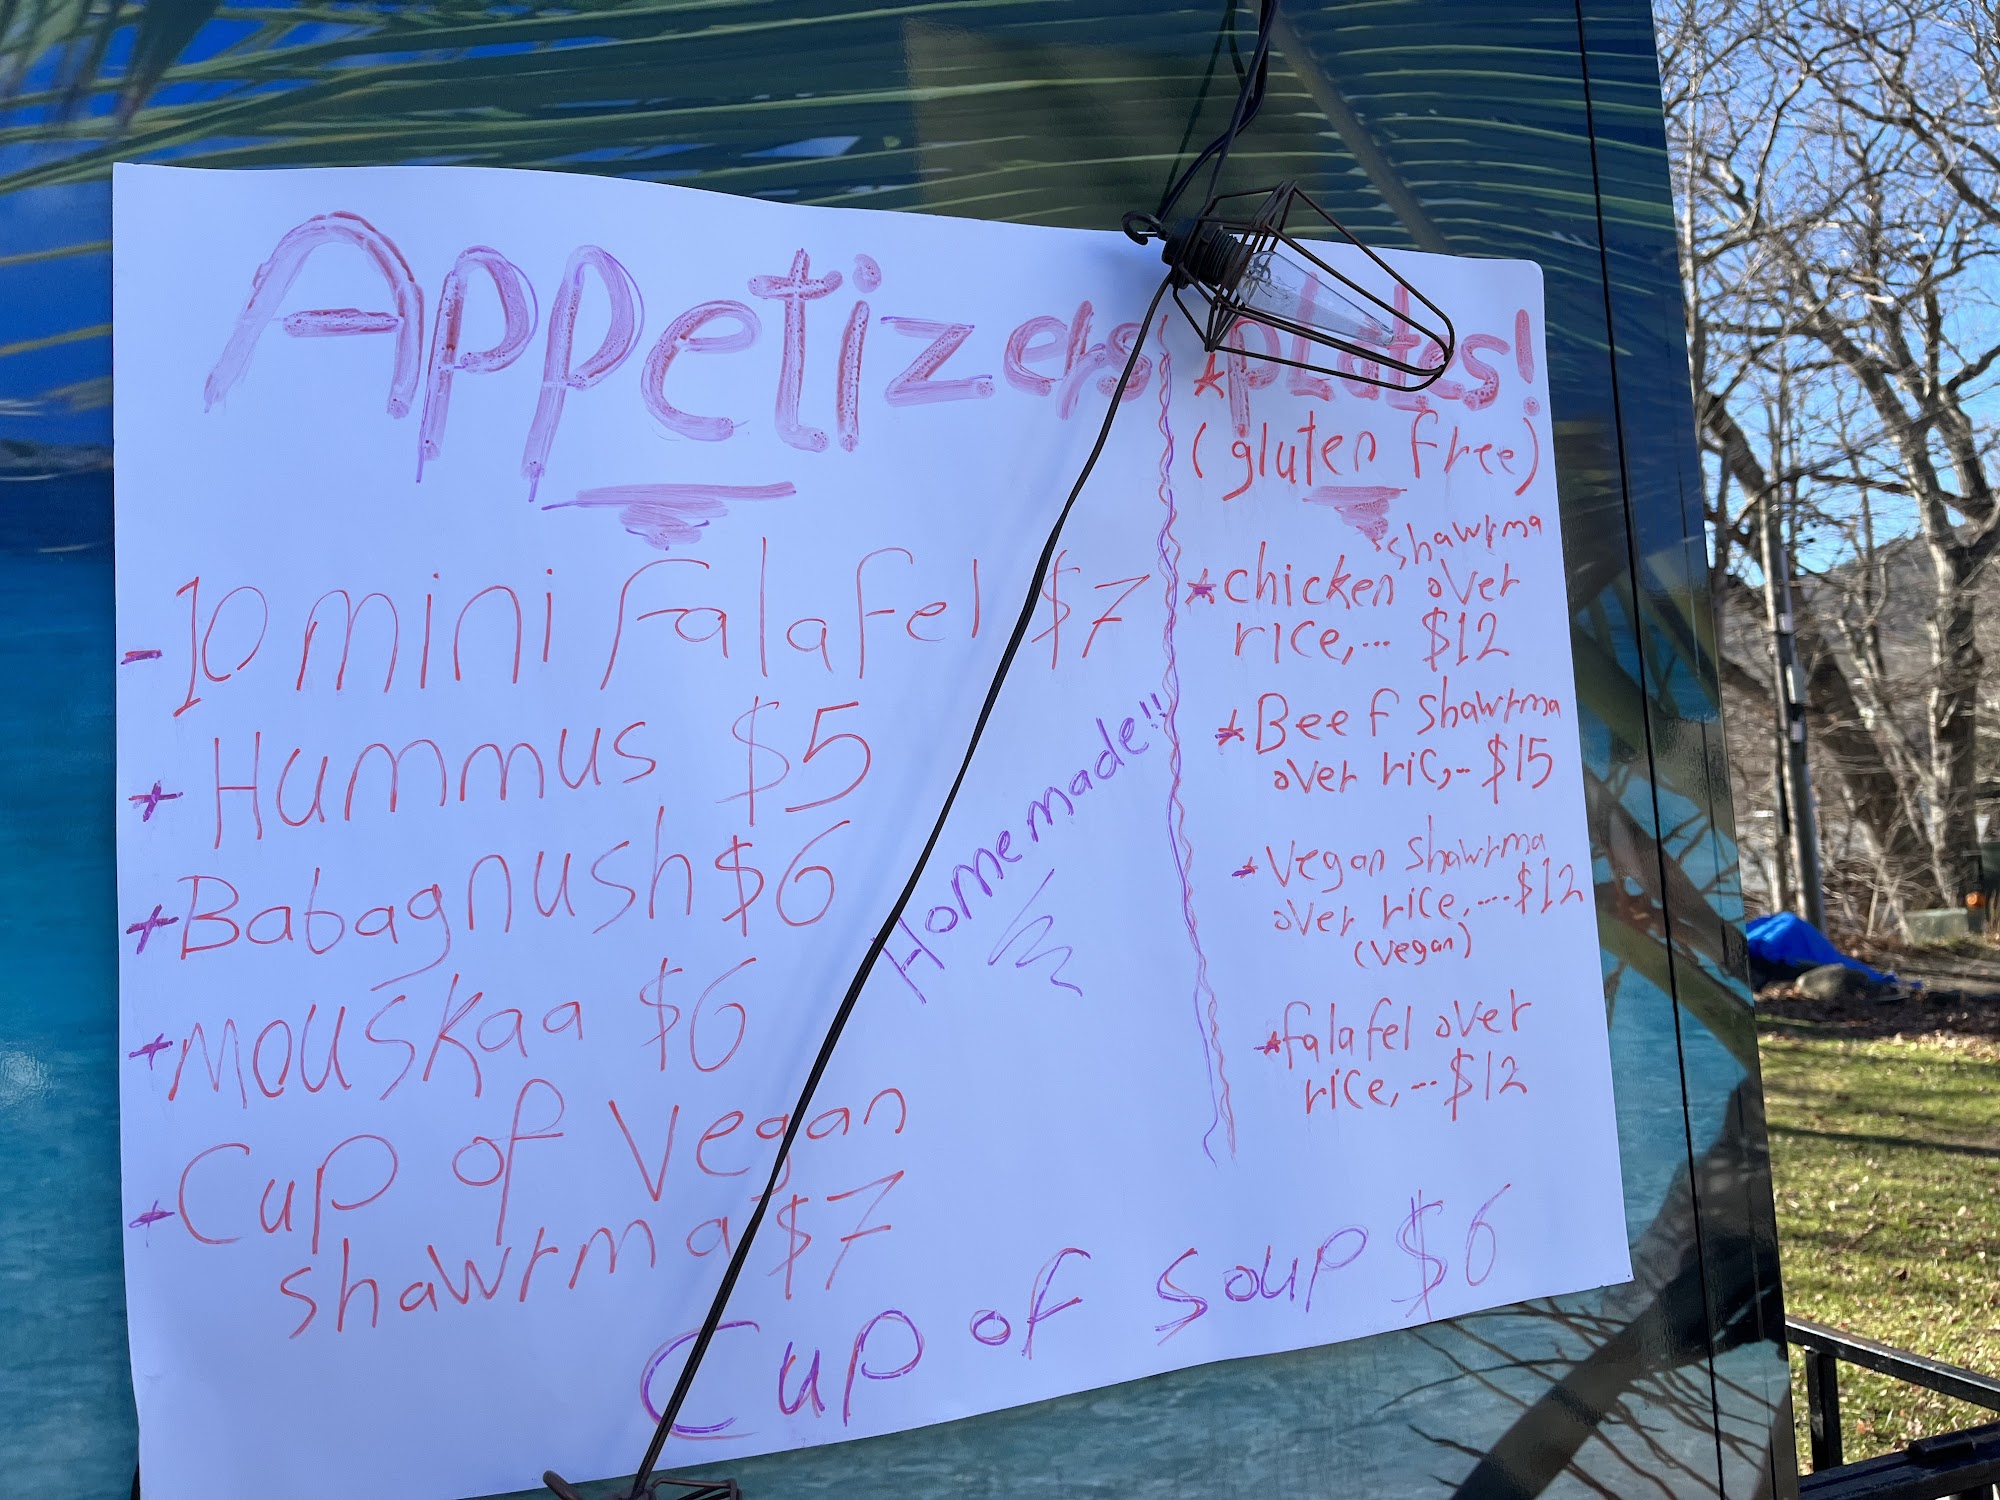 Appetizers
- 10 mini falafel $7
+ Hummus $5
+ Babagnush $6
+ Mouskaa $6
+ Cup of Vegan
shawrma $7
Homemade!!
* plates!
(gluten free)
* chicken shawrma over
rice,... $12
* Beef shawrma
over ric,.. $15
* Vegan shawrma
over rice,.... $12
(vegan)
* falafel over
rice,... $12
Cup of soup $6